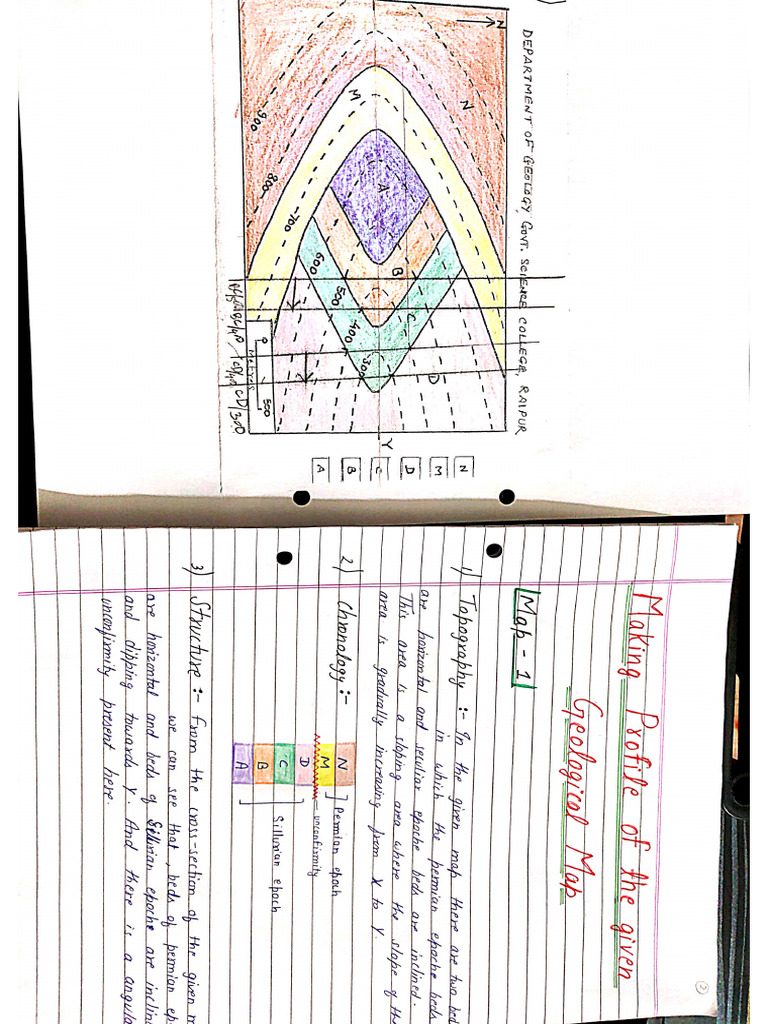 DEPARTMENT OF GEOLOGY, GOVT. SCIENCE COLLEGE, RAIPUR
N
N
M
A
B
C
D
900
800
700
600
500
400
300
Y
0 500
Metres
N
M
D
C
B
A
2
Making Profile of the given
Geological Map
Map - 1
1) Topography :- In the given map there are two bed
in which the permian epoche beds
are horizontal and seculian epoche beds are inclined.
This area is a sloping area where the slope of th
area is gradually increasing from X to Y.
2) Chronology :-
N
M
D
C
B
A
Permian epoch
unconfirmity
Silluvian epoch
3) Structure :- From the cross-section of the given m
we can see that, beds of permian ep
are horizontal and beds of Silluvian epoche are inclin
and dipping towards Y. And there is a angula
unconfirmity present here.